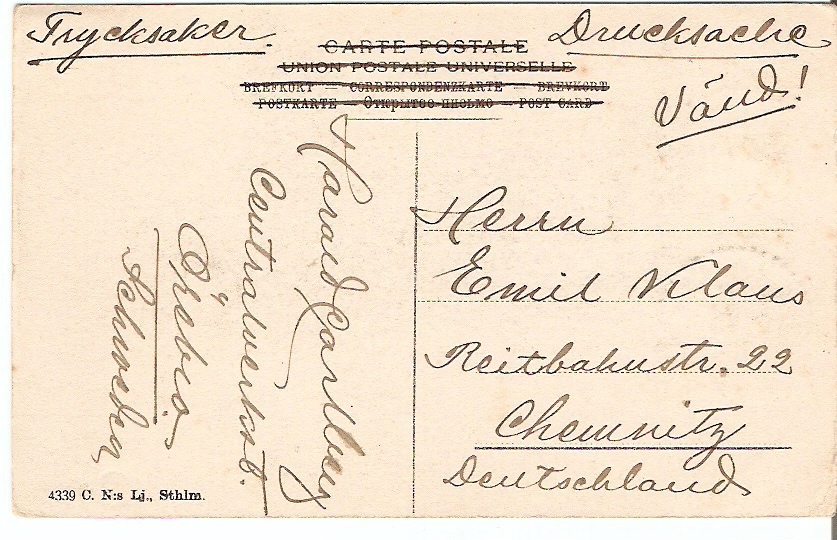 Trycksaker.
Drucksache
CARTE POSTALE
UNION POSTALE UNIVERSELLE
BREFKORT — CORRESPONDENZKARTE — BREVKORT
POSTKARTE — Открытое письмо — POST CARD
Vänd!
Herrn
Emil Klaus
Reitbahnstr. 22
Chemnitz
Deutschland
Harald Carlberg
Centralverkst.
Örebro
Schweden
4339 C. N:s Lj., Sthlm.